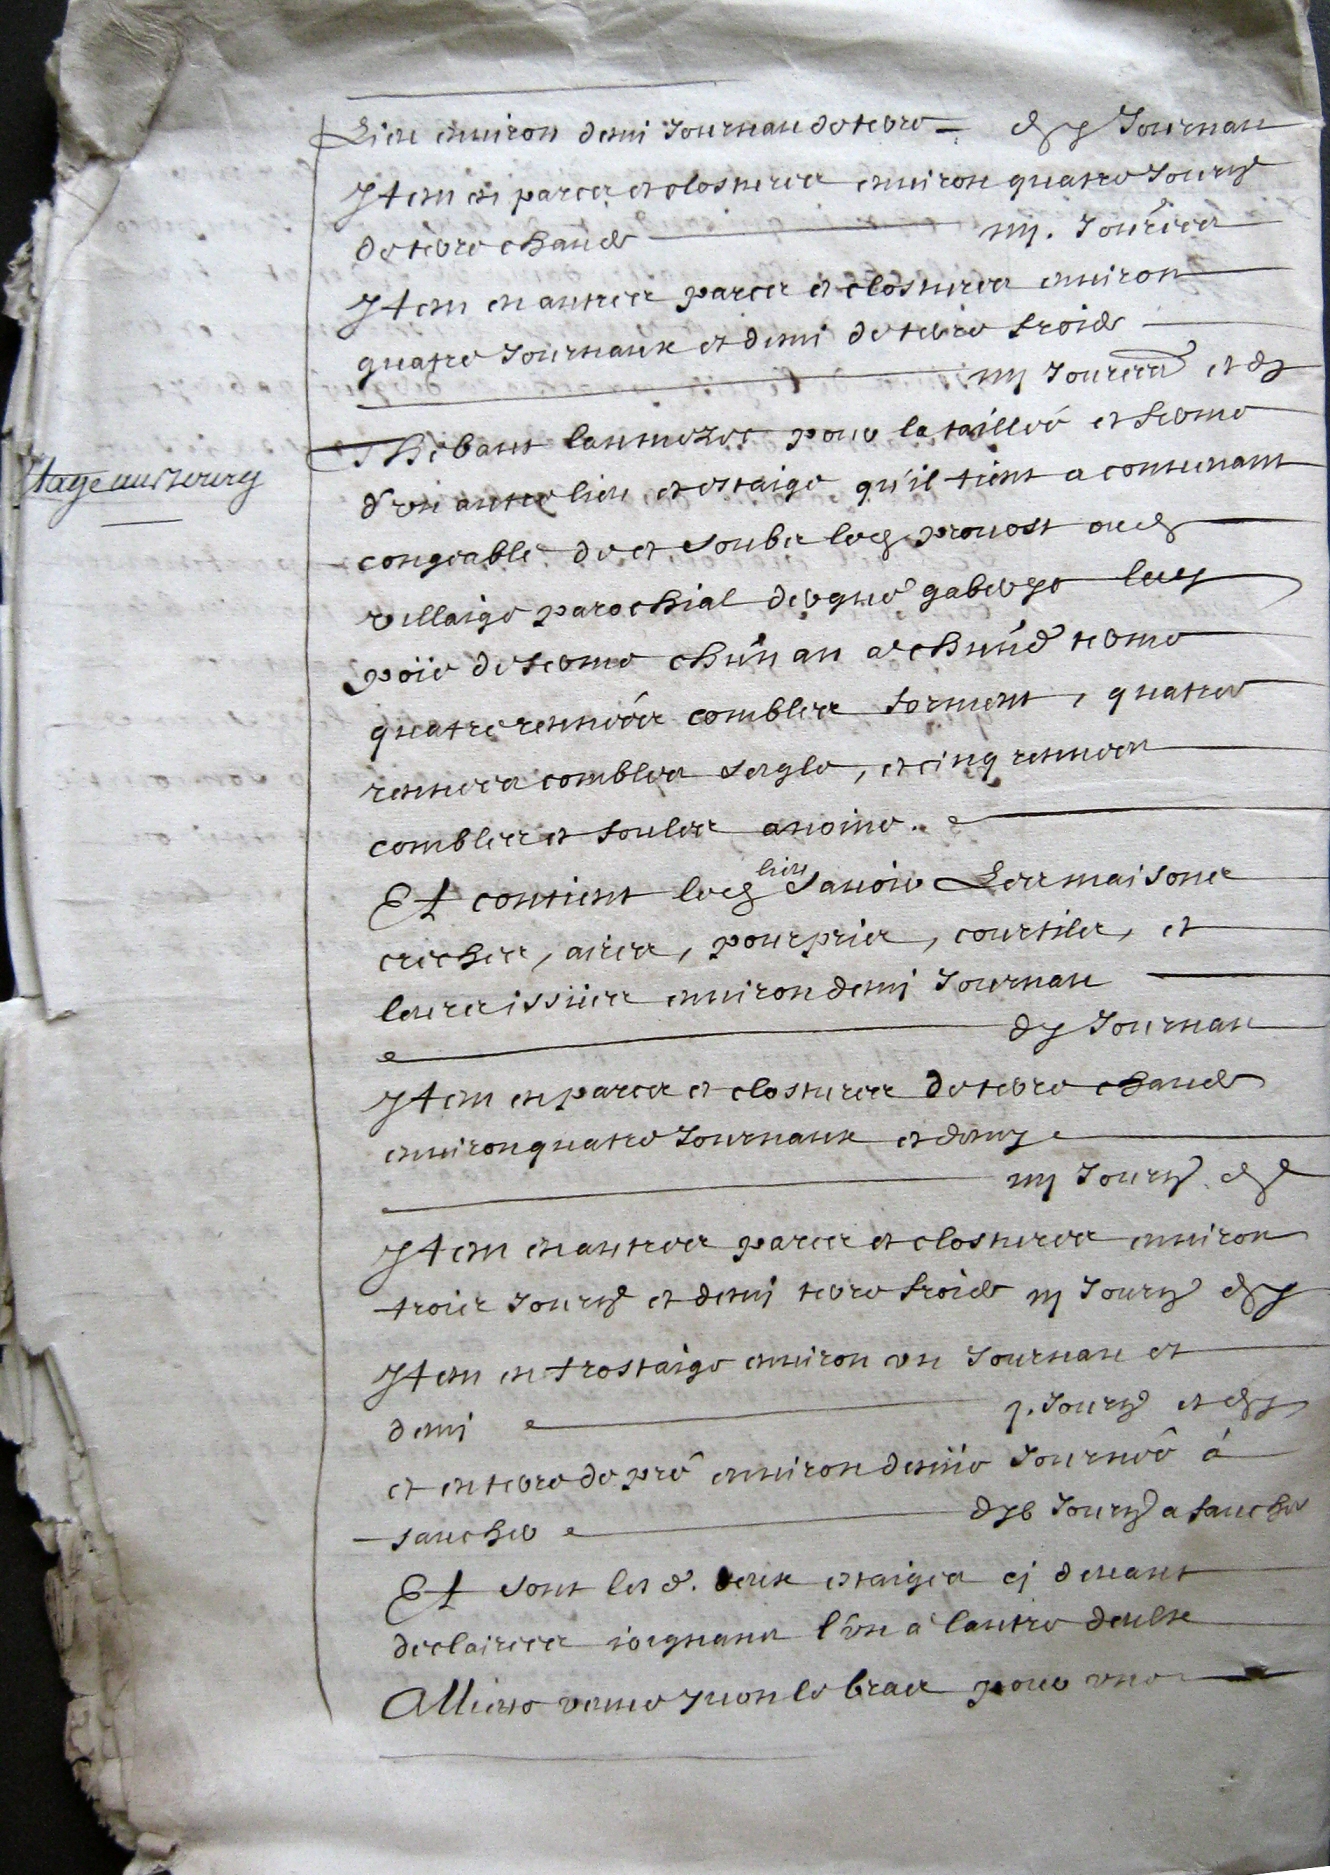 Lieu environ demi Journau de terre dy Journau
Item en parcs et closturés environ quatre Journ
de terre chaude iiij. Journaux
Item en autres parcs et closturés environ
quatre Journaux et demi de terre froide
iiij Journaux et dy
Stage au bourg
pour la taillée et ferme
d'un autre lieu et estaige qu'il tient a convenant
congeable de et soubz led provost oud
villaige parochial
poie de ferme chun an a chund terme
quatre renneés combles forment, quatre
rennees combles segle, et cinq rennees
combles et foulees avoine.
Et contient led lieu savoir Les maisons
creches, aires, pourpris, courtils, et
leurs issües environ demj Journau
dy Journau
Item en parcs et closturés de terre chaude
environ quatre Journaux et demy
iiij Journ dy
Item en autres parcs et closturés environ
trois Journ et demj terre froide iij Journ dy
Item en frostaige environ un Journau et
demj j. Journ et dy
et en terre de pré environ demïe Journée à
faucher Journ a faucher
Et sont les d. deux estaiges cj devant
declairees joignans l'un à lautre deulx